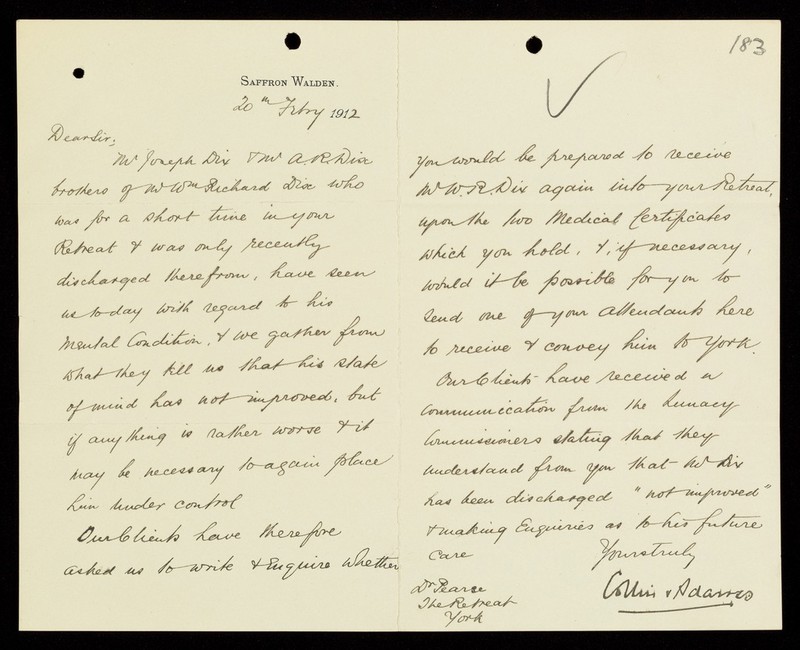 SAFFRON WALDEN.
20th Febry 1912
Dear Sir,
Mr Joseph Dix & Mr A. R. Dix
brothers of Mr Wm Richard Dix who
was for a short time in your
Retreat & was only recently
discharged therefrom, have seen
us to day with regard to his
Mental Condition, & we gather from
what they tell us that his state
of mind has not improved, but
if anything is rather worse & it
may be necessary to again place
him under control
Our Clients have therefore
asked us to write & Enquire whether
183
you would be prepared to receive
Mr W. R. Dix again into your Retreat,
upon the two Medical Certificates
which you hold, &, if necessary,
would it be possible for you to
send one of your Attendants here
to receive & convey him to York.
Our Clients have received a
communication from the Lunacy
Commissioners stating that they
understand from you that Mr Dix
has been discharged "not improved"
& making Enquiries as to his future
care
Yours truly
Collin & Adams
Dr Pearce
The Retreat
York